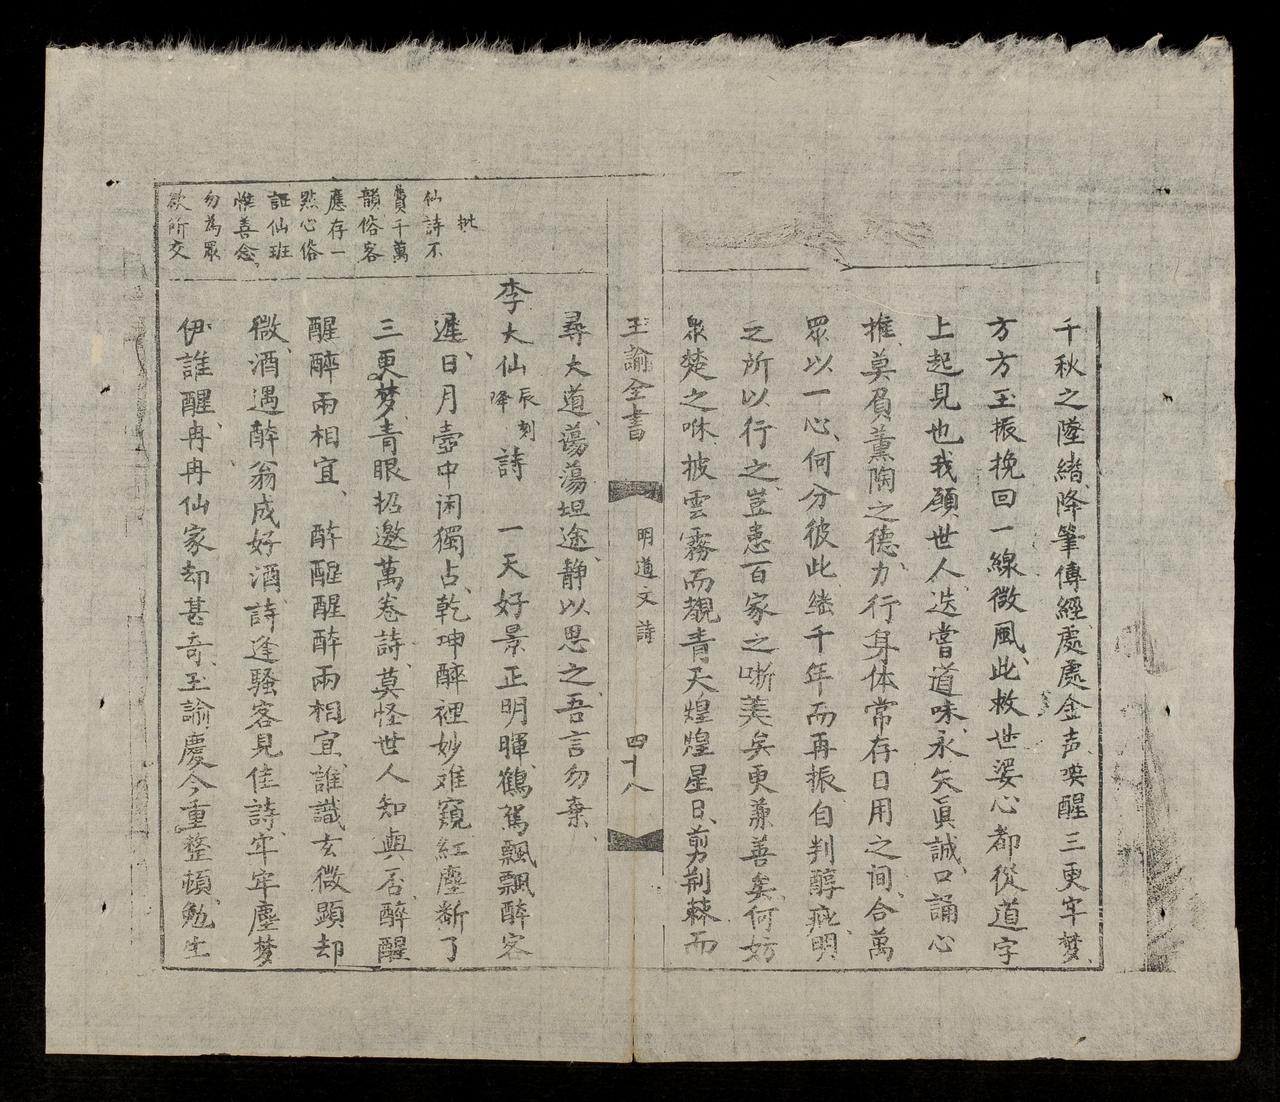 千秋之墜緒、降筆傳經處處金声、喚醒三更牢夢、
方方玉振挽回一線微風、此救世婆心都從道字
上起見也我願世人、迭嘗道味、永矢眞誠、口誦心
推、莫負薰陶之德、力行身体常存日用之间、合萬
眾以一心、何分彼此继千年而再振自判醇疵、明
之所以行之、豈患百家之晰、美矣更兼善矣、何妨
衆楚之咻、披雲霧而覩青天煌煌星日、剪荆棘而
玉諭全書 明道文詩 四十八
尋大道、蕩蕩坦途、静以思之、吾言勿棄、
李大仙辰刻降詩 一天好景正明暉、鶴駕飄飄醉客
遲、日月壺中闲獨占、乾坤醉裡妙难窺紅塵斷了
三更梦、青眼招邀萬卷詩、莫怪世人知與否、醉醒
醒醉兩相宜、 醉醒醒醉兩相宜、誰識玄微顕却
微、酒遇醉翁成好酒、詩逢騷客見佳詩、牢牢塵梦
伊誰醒、冉冉仙家却甚奇、玉諭慶今重整頓、勉生
批
仙詩不
費千萬
韻、俗客
應存一
點心俗
証仙班
惟善念、
勿為眾
欲所交